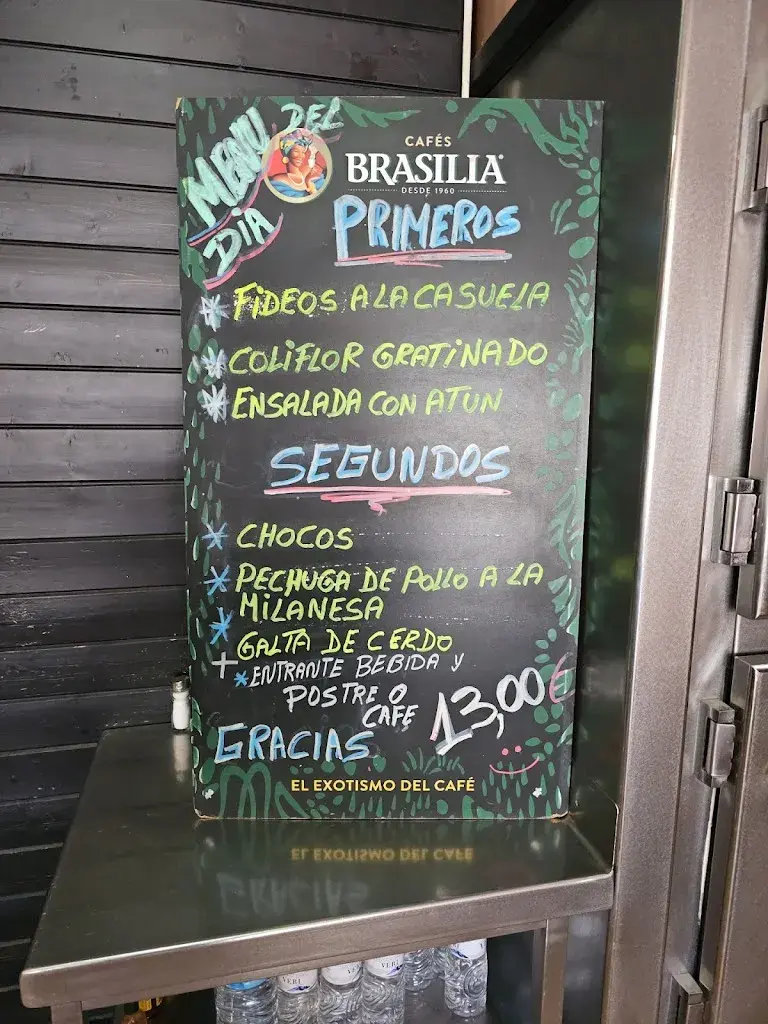 MENU DEL
DIA
CAFÉS
BRASILIA
DESDE 1960
PRIMEROS
* FIDEOS A LA CASUELA
* COLIFLOR GRATINADO
* ENSALADA CON ATUN
SEGUNDOS
* CHOCOS
* PECHUGA DE POLLO A LA
MILANESA
* GALTA DE CERDO
+ *ENTRANTE BEBIDA Y
POSTRE O
CAFE
13,00€
GRACIAS
EL EXOTISMO DEL CAFÉ
VERI